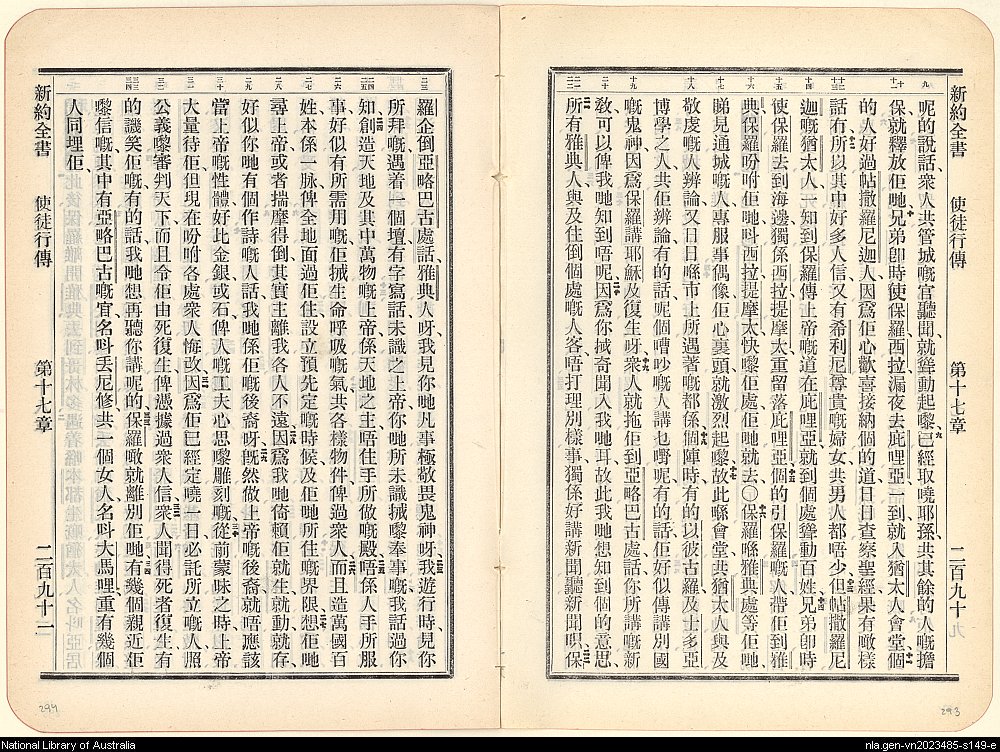 新約全書 使徒行傳 第十七章 二百九十
九 呢的說話、衆人共管城嘅官聽聞、就聳動起嚟、已經取曉耶孫、共其餘的人嘅擔
十 十一 保、就釋放佢哋、兄弟卽時使保羅西拉、漏夜去庇哩亞、一到就入猶太人會堂、個
的人好過帖撒羅尼迦人、因爲佢心歡喜接納個的道、日日查察聖經、果有噉樣
十二 十三 話冇、所以其中好多人信、又有希利尼尊貴嘅婦女、共男人都唔少、但帖撒羅尼
十四 迦嘅猶太人、一知到保羅傳上帝嘅道在庇哩亞、就到個處聳動百姓、兄弟卽時
十五 使保羅去到海邊、獨係西拉提摩太、重留落庇哩亞、個的引保羅嘅人、帶佢到雅
十六 典、保羅吩咐佢哋、呌西拉提摩太快嚟佢處、佢哋就去〇保羅喺雅典處等佢哋、
十七 睇見通城嘅人專服事偶像、佢心裏頭就激烈起嚟、故此喺會堂共猶太人、與及
十八 敬虔嘅人辨論、又日日喺市上所遇著嘅都係、個陣時有的以彼古羅及士多亞
博學之人、共佢辨論、有的話、呢個嘈吵嘅人、講乜嘢呢、有的話、佢好似傳講別國
十九 嘅鬼神、因爲保羅講耶穌及復生呀、衆人就拖佢到亞略巴古處、話、你所講嘅新
二十 敎、可以俾我哋知到唔呢、因爲你拭奇聞入我哋耳、故此我哋想知到個的意思、
二一 二二 所有雅典人、與及住倒個處嘅人客、唔打理別樣事、獨係好講新聞聽新聞呮、保
二三 羅企倒亞略巴古處話、雅典人呀、我見你哋凡事極敬畏鬼神呀、我遊行時、見你
所拜嘅、遇着一個壇、有字寫話、未識之上帝、你哋所未識拭嚟奉事嘅、我話過你
二四 二五 知、創造天地及其中萬物嘅上帝、係天地之主、唔住手所做嘅殿、唔係人手所服
二六 事、好似有所需用嘅、佢拭生命呼吸嘅氣、共各樣物件、俾過衆人、而且造萬國百
二七 姓、本係一脉、俾全地面過佢住、設立預先定嘅時候、及佢哋所往嘅界限、想佢哋
二八 尋上帝、或者揣摩得倒、其實主離我各人不遠、因爲我哋倚賴佢就生、就動、就存、
二九 好似你哋有個作詩嘅人話、我哋係佢嘅後裔呀、旣然做上帝嘅後裔、就唔應該
三十 當上帝嘅性體、好比金銀、或石、俾人嘅工夫心思嚟雕刻嘅、從前蒙昧之時、上帝
三一 大量待佢、但現在吩咐各處衆人悔改、因爲佢已經定曉一日、必託所立嘅人、照
三二 公義嚟審判天下、而且令佢由死復生、俾憑據過衆人信、衆人聞得死者復生、有
三三 三四 的譏笑佢嘅、有的話、我哋想再聽你講呢的、保羅噉就離別佢哋、有幾個親近佢
嚟信嘅、其中有亞略巴古嘅官、名呌丟尼修、共一個女人、名呌大馬哩、重有幾個
人同埋佢、
新約全書 使徒行傳 第十七章 二百九十二
293
294
National Library of Australia
nla.gen-vn2023485-s149-e